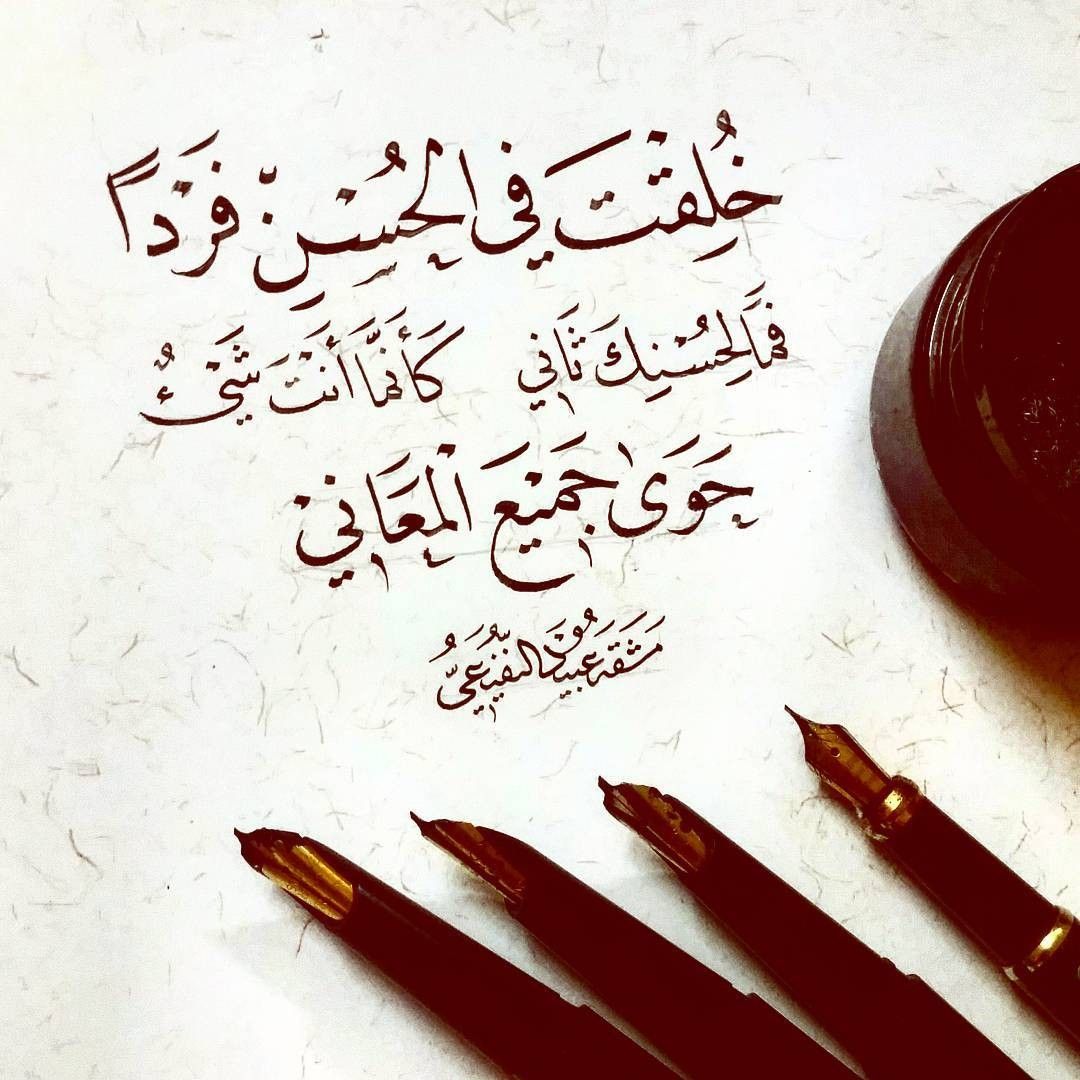 خُلِقْتَ في الحُسْنِ فَرْداً
فَمَا لِحُسْنِكَ ثَاني كَأَنَّمَا أَنْتَ شَيْءٌ
حَوَى جَمِيْعَ الْمَعَانِيْ
مَشَقَهُ عَبِيدُ النفيعي